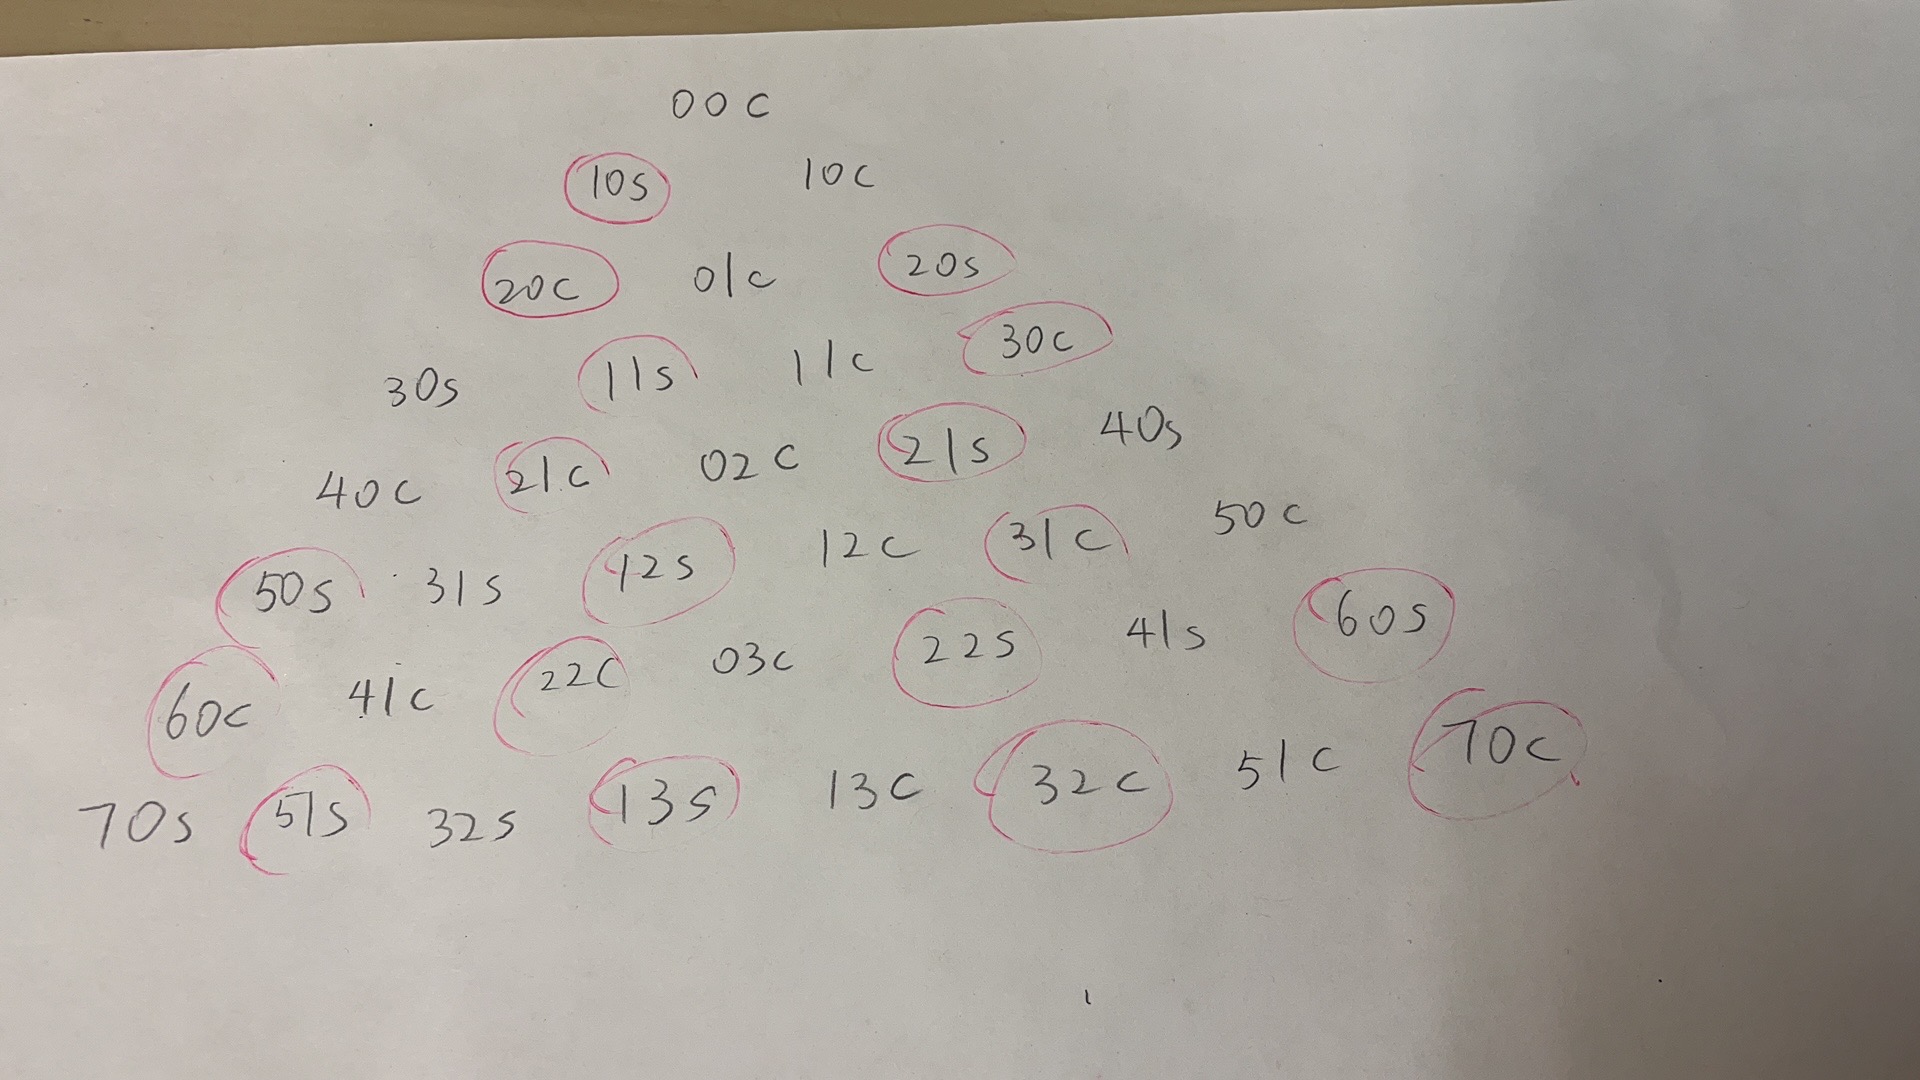 00c
10s 10c
20c 01c 20s
30s 11s 11c 30c
40c 21c 02c 21s 40s
50s 31s 12s 12c 31c 50c
60c 41c 22c 03c 22s 41s 60s
70s 51s 32s 13s 13c 32c 51c 70c